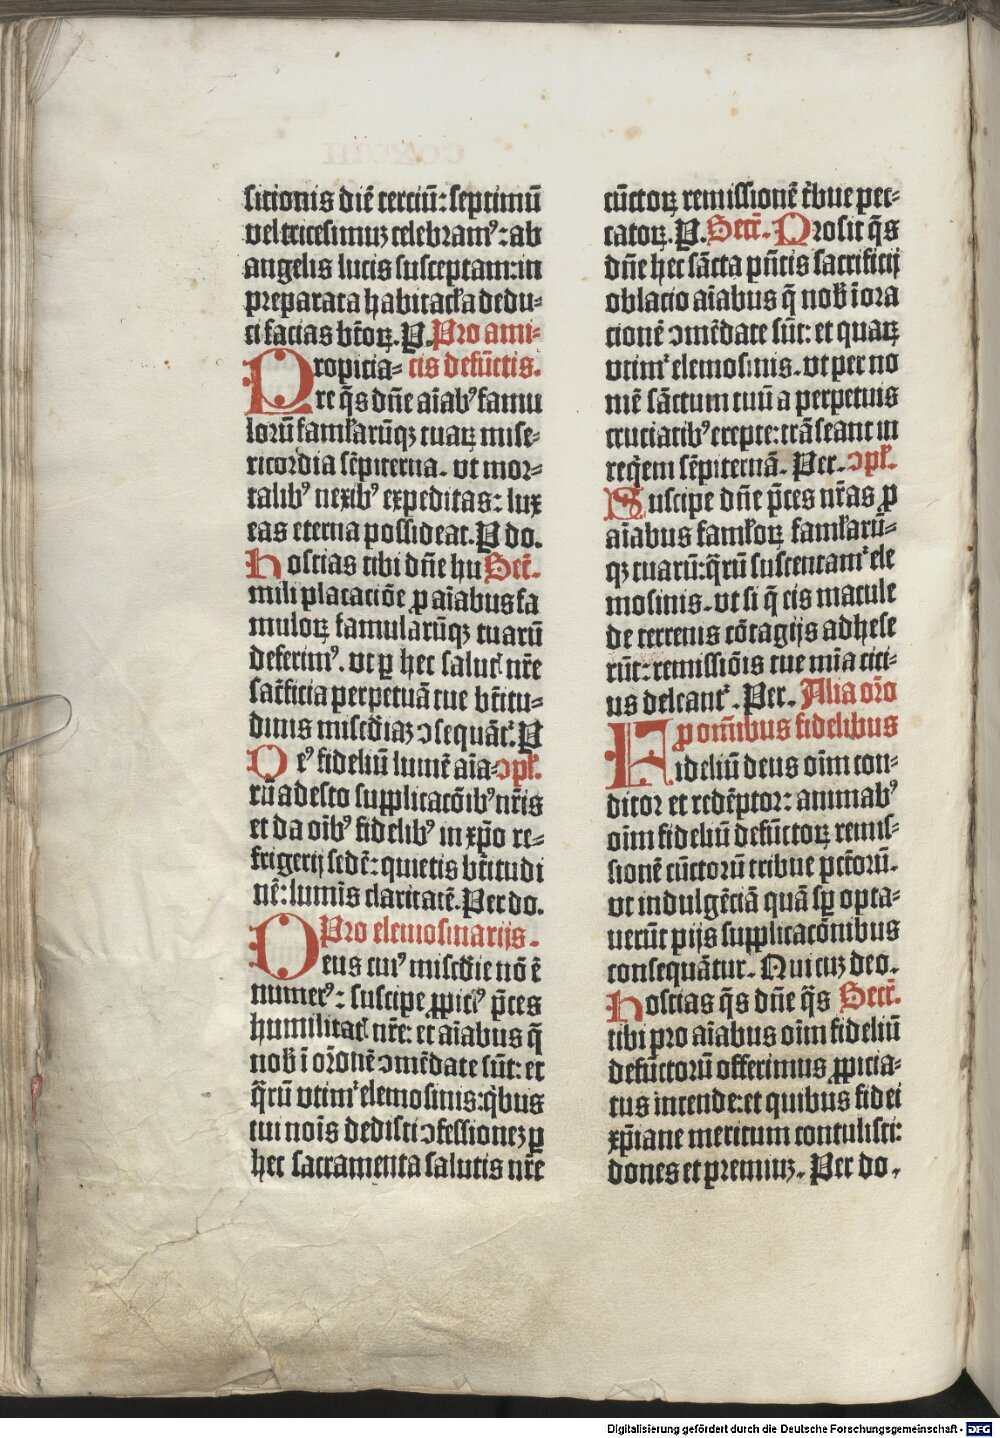 sicionis diē terciū: septimū
vel tricesimuꝫ celebramꝰ: ab
angelis lucis susceptam: in
preparata habitacła dedu-
ci facias bt̄oꝝ. P. Pro ami-
Propicia- cis defūctis.
re q̄s dn̄e aīabꝰ famu
lorū famłarūqꝫ tuaꝝ mise-
ricordia sēpiterna. vt mor-
talibꝰ nexibꝰ expeditas: lux
eas eterna possideat. P do.
Hostias tibi dn̄e hu Sec̄t.
mili placaciōe ꝓ aīabus fa
muloꝝ famularūqꝫ tuarū
deferimꝰ. vt ꝑ hec salut̄ nr̄e
sac̄ficia perpetuā tue bt̄itu-
dinis misc̄diaꝫ ↄsequāt᷑. P
Deꝰ fideliū lumē aīa- ↄpł.
rū adesto supplicacōibꝰ nr̄is
et da oībꝰ fidelibꝰ in xp̄o re-
frigerij sedē: quietis bt̄itudi
nē: lumīs claritatē. Per do.
Pro elemosinarijs.
Deus cuiꝰ misc̄die nō ē
numerꝰ: suscipe ꝓpiciꝰ p̄ces
humilitat̄ nr̄e: et aīabus q̄
nob̄ ī or̄onē ↄmēdate sūt: et
q̄rū vtim᷑ elemosinis: q̄bus
tui noīs dedisti ↄfessioneꝫ ꝑ
hec sacramenta salutis nr̄e
cūctoꝝ remissionē t̄bue pec-
catoꝝ. P. Sec̄t. Prosit q̄s
dn̄e hec sācta pn̄tis sacrificij
oblacio aīabus q̄ nob̄ ī ora
cionē ↄmēdate sūt: et quaꝝ
vtim᷑ elemosinis. vt per no
mē sāctum tuū a perpetuis
cruciatibꝰ erepte: trāseant in
req̄em sēpiternā. Per. ↄpł.
Suscipe dn̄e p̄ces nr̄as ꝓ
aīabus famłoꝝ famłarū-
qꝫ tuarū: q̄rū sustentam᷑ ele
mosinis. vt si q̄ eis macule
de terrenis cōtagijs adhese
rūt: remissiōis tue mīa citi-
us deleant᷑. Per. Alia or̄o
ꝓ om̄ibus fidelibus
Fideliū deus oīm con-
ditor et redēptor: animabꝰ
oīm fideliū defūctoꝝ remis-
sionē cūctorū tribue pc̄torū.
vt indulgēciā quā sꝑ opta-
uerūt pijs supplicacōnibus
consequātur. Qui cuꝫ deo.
Hostias q̄s dn̄e q̄s Sec̄t.
tibi pro aīabus oīm fideliū
defūctorū offerimus ꝓpicia-
tus intende: et quibus fidei
xp̄iane meritum contulisti:
dones et premiuꝫ. Per do.
Digitalisierung gefördert durch die Deutsche Forschungsgemeinschaft - DFG